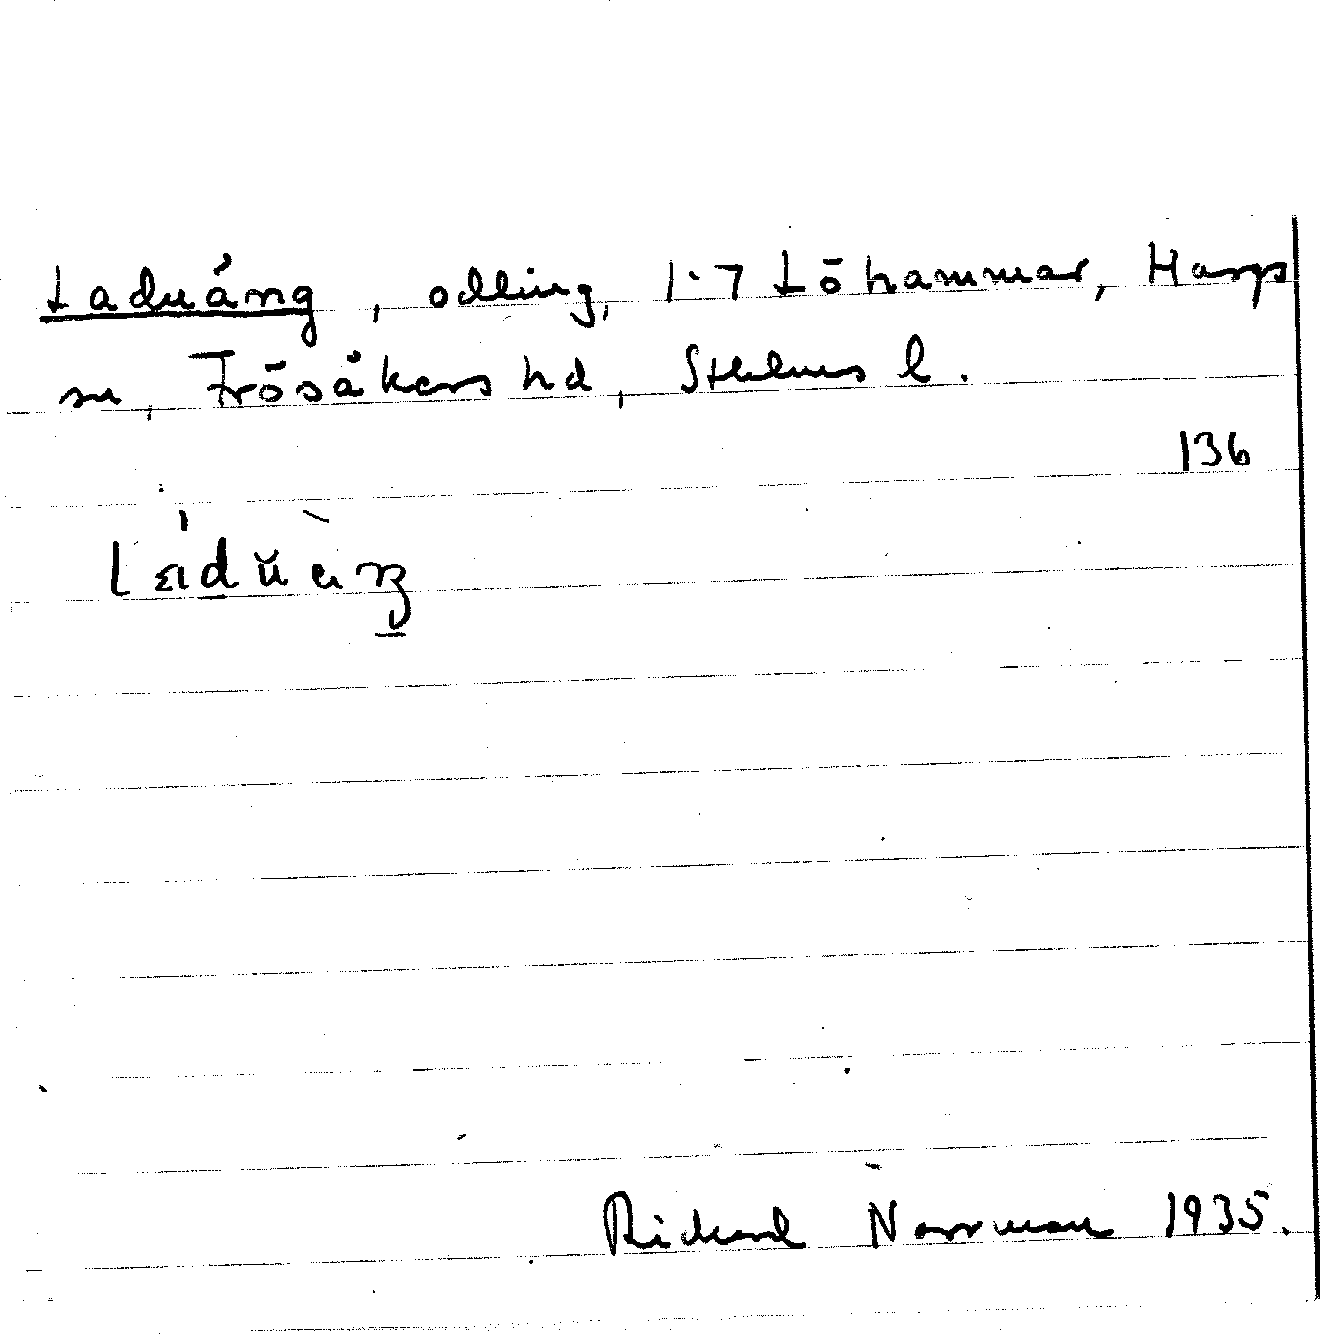 Laduång, odling, 1:7 Löhammar, Hargs
sn, Frösåkers hd, Sthlms l.
136
Rickard Norrman 1935.